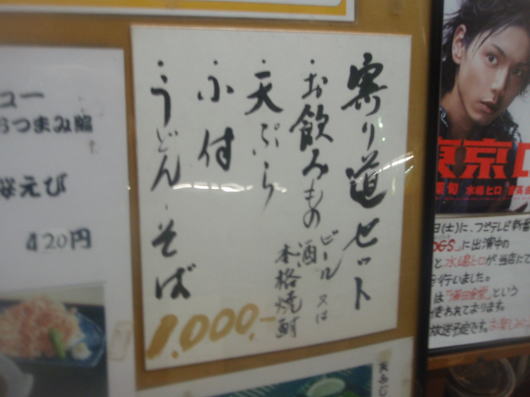 寄り道セット
・お飲みもの
ビール 又は
酒
本格焼酎
・天ぷら
・小付
・うどん・そば
1,000.-
ュー
おつまみ
桜えび
420円
東京
水嶋ヒロ
日(土)に、フジテレビ
に出演中の
と水嶋ヒロが、当店にて
行いました。
は
という
おります。
放送予定です。